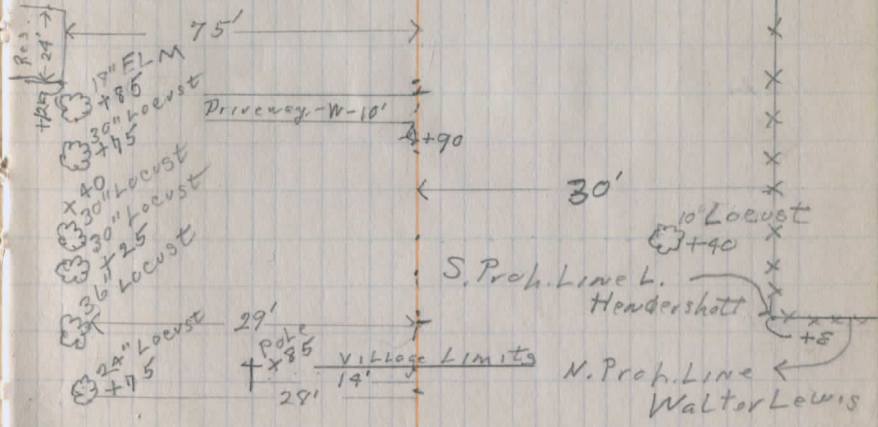 Res.
24'
75'
18" ELM
+85
30" Locust
+75
Driveway-W-10'
+90
x40
30" Locust
30" Locust
+25
36" Locust
30'
10" Locust
+40
S. Proh. Line L.
Hendershott
29'
Pole
x85
Village Limits
14'
24" Locust
+75
28'
+8
N. Proh. Line
Walter Lewis